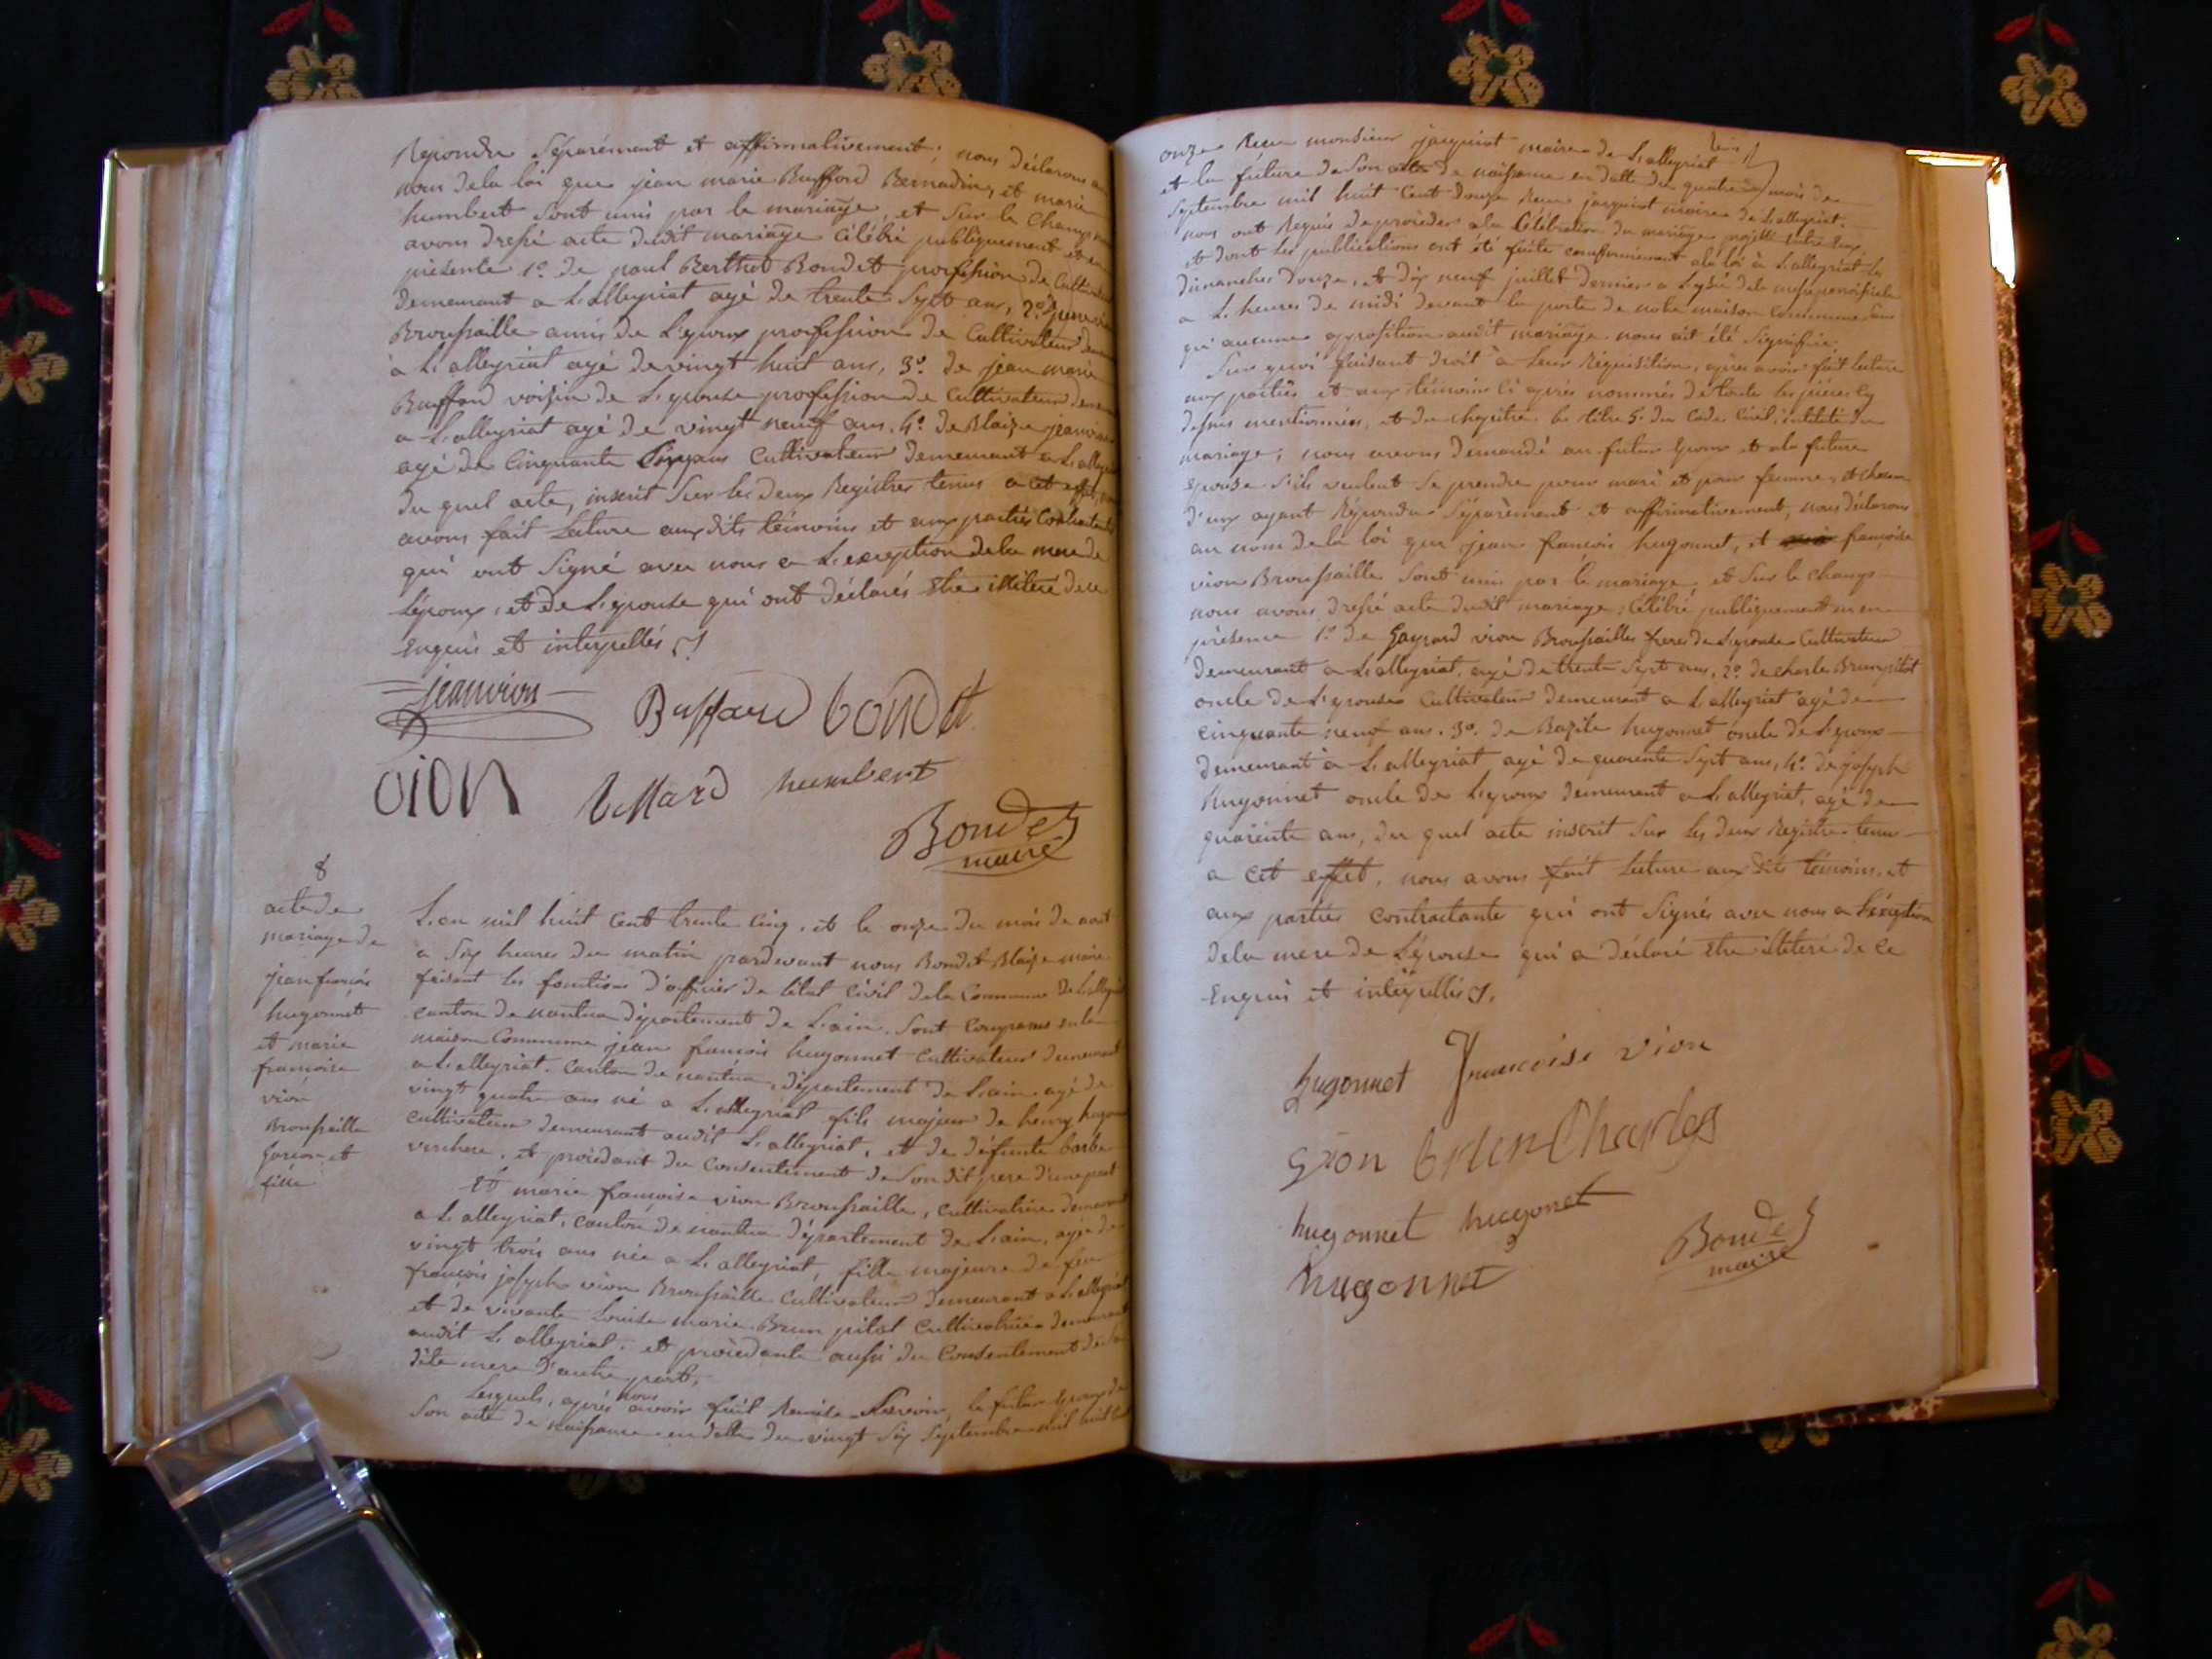 Répondu Séparément et affirmativement, nous déclarons au
nom dela loi que jean marie Buffard Bernadin, et marie
humbert Sont unis par le mariage, et Sur le Champ nous
avons dressé acte dudit mariage Célébré publiquement et en
présence 1º de paul Berthet Bondet profession de Cultivateur
demeurant a L'alleyriat agé de trente Sept ans, 2º
Broussaille amis de L'epoux profession de Cultivateur
à L'alleyriat agé de vingt huit ans, 3º de jean marie
Buffard voisin de L'epouse profession de Cultivateur
a L'alleyriat agé de vingt neuf ans, 4º de Blaize jeanvion
agé de Cinquante Cultivateur demeurant a L'alleyriat
Du quel acte, inscrit Sur les deux Registres tenus a cet effet,
avons fait Lecture auxdits témoins et aux parties Contractantes
qui ont Signé avec nous a L'exception dela mere de
L'époux, et de L'epouse qui ont déclarés etre illiteré de ce
Enquis et interpellés
jeanvion
Buffard bondet
vion humbert
Bondet
maire
8
acte de
mariage de
jean françois
hugonnet
et marie
françoise
vion
Broussaille
garcon et
fille
L'an mil huit Cent trente Cinq, et le onze du mois de aout
a Six heures du matin pardevant nous Bondet Blaize maire
faisant les fonctions d'officier de l'état Civil dela Commune de L'alleyriat
canton de nantua département de L'ain, Sont Comparus en la
maison Commune jean francois hugonnet Cultivateur demeurant
a L'alleyriat, Canton de nantua, département de L'ain, agé de
vingt quatre ans né a L'alleyriat fils majeur de henry hugonnet
Cultivateur demeurant audit L'alleyriat, et de défunte barbe
verchere, et procédant du Consentement de Son dit pere d'une part
Et marie françoise vion Broussaille, Cultivatrice demeurant
a L'alleyriat, canton de nantua département de L'ain, agée de
vingt trois ans née a L'alleyriat, fille majeure de feu
françois joseph vion Broussaille Cultivateur demeurant a L'alleyriat
et de vivante Louise marie Brun pilot Cultivatrice demeurant
audit L'alleyriat, et procédante aussi du Consentement de Sa
dite mere d'autre part,
Lesquels, après nous avoir fait Remise Savoir, le futur Epoux de
Son acte de naissance en datte du vingt Six Septembre mil huit Cent
onze Recu monsieur jacquiot maire de L'alleyriat
et la future de Son acte de naissance en datte du quatre du mois de
Septembre mil huit Cent Douze Recu jacquiot maire de L'alleyriat.
nous ont Requis de procéder a la Célébration du mariage projetté entre Eux
et dont les publications ont été faite conformément ala loi à L'alleyriat les
dimanches Douze, et dix neuf juillet dernier a L'issue dela messe paroissiale
a L'heure de midi devant la porte de notre maison Commune Sans
qu'aucune opposition audit mariage nous ait été Signifiée.
Sur quoi faisant droit à leur Réquisition, après avoir fait lecture
aux parties et aux témoins Ci après nommés de toute les pièces Cy
dessus mentionnées, et du chapitre 6 titre 5. du Code Civil, intitulé du
mariage; nous avons demandé au futur Epoux et ala future
Epouse S'ils veulent Se prendre pour mari et pour femme, et chacun
d'eux ayant Répondu Séparément et affirmativement, nous déclarons
au nom de la loi que jean françois hugonnet, et françoise
vion Broussaille Sont unis par le mariage, et Sur le champs
nous avons dressé acte dudit mariage, Célébré publiquement en
présence 1º de Gaspard vion Broussailles frere de L'epouse Cultivateur
demeurant a L'alleyriat agé de trente Sept ans, 2º de charle Brun pilot
oncle de L'epouse Cultivateur demeurant a L'alleyriat agé de
cinquante neuf ans, 3º de Bazile hugonnet oncle de L'epoux
demeurant à L'alleyriat agé de quarente Sept ans, 4º de joseph
hugonnet oncle de L'epoux demeurant a L'alleyriat, agé de
quarente ans, du quel acte inscrit Sur les deux Registre tenu
a cet effet, nous avons fait Lecture aux dits témoins, et
aux parties Contractante qui ont Signés avec nous a L'éxéption
dela mere de L'épouse qui a déclaré etre illiteré de ce
Enquis et intérpellés.
hugonnet françoise vion
brun Charles
hugonnet hugonet
hugonnet
Bondet
maire